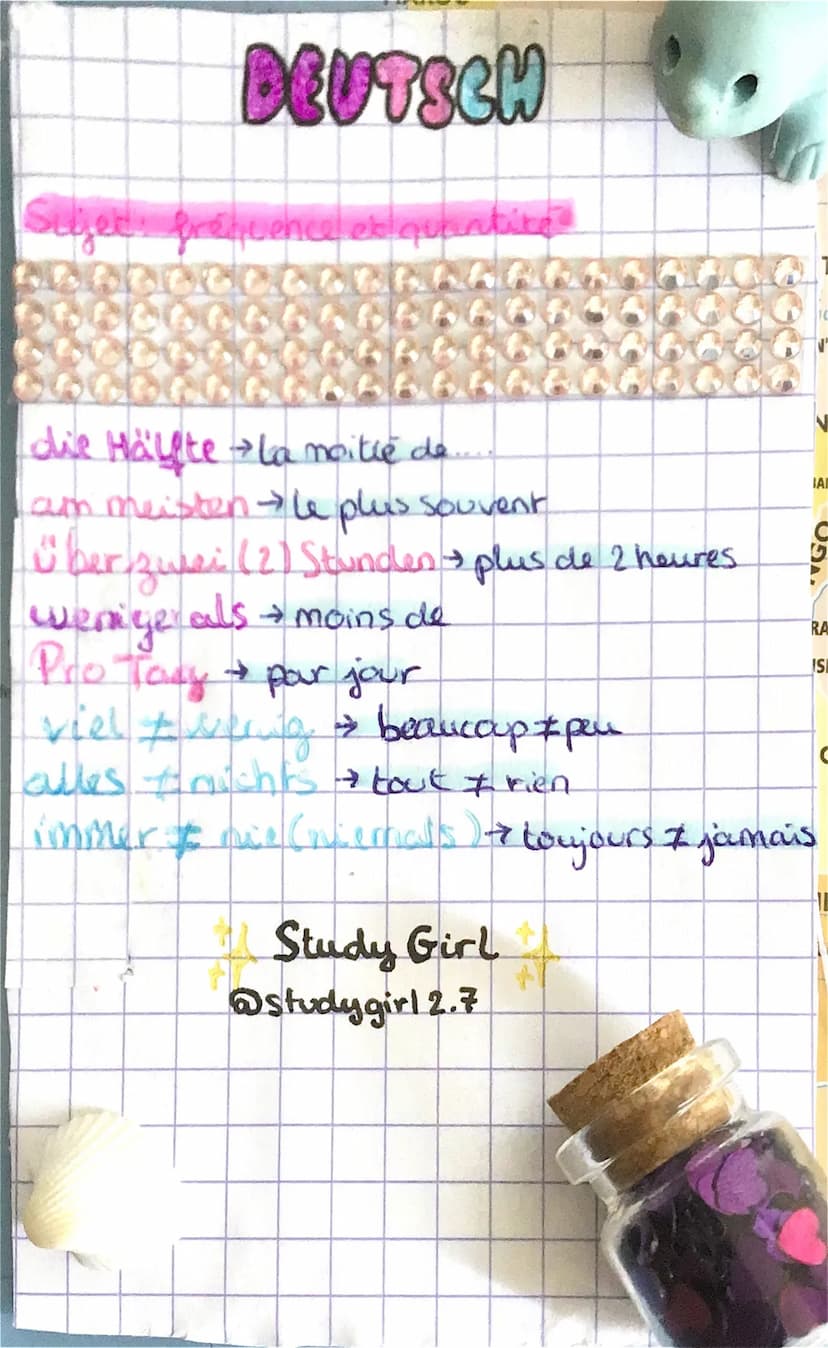 DEUTSCH
Sujet: fréquence et quantité
die Hälfte → la moitié de....
am meisten → le plus souvent
über zwei (2) Stunden → plus de 2 heures
weniger als → moins de
Pro Tag → par jour
viel ≠ wenig → beaucoup ≠ peu
alles ≠ nichts → tout ≠ rien
immer ≠ nie (niemals) → toujours ≠ jamais
Study Girl
@studygirl2.7